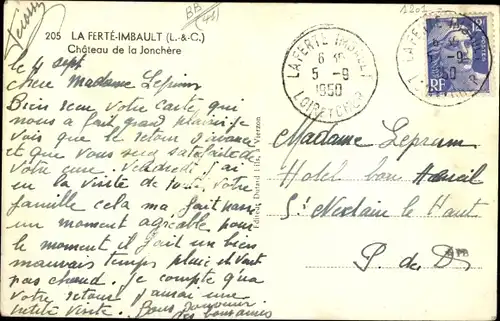 205 LA FERTÉ-IMBAULT (L.-&C.)
Château de la Jonchère
le 4 sept
chère Madame Leprun
Bien reçu votre carte qui
nous a fait grand plaisir. Je
vois que le retour s'avance
et que vous serez satisfaite de
votre cure. Vendredi j'ai
eu la visite de toute votre
famille cela m'a fait passé
un moment agréable pour
le moment il fait un bien
mauvais temps pluie et vent
pas chaud. Je compte qu'à
votre retour j'aurai une
petite visite. Bons
LA FERTÉ IMBAULT
5 -9
1950
LOIR ET CHER
RF
Madame Leprun
Hotel bon Accueil
St Nectaire le Haut
P. de D.